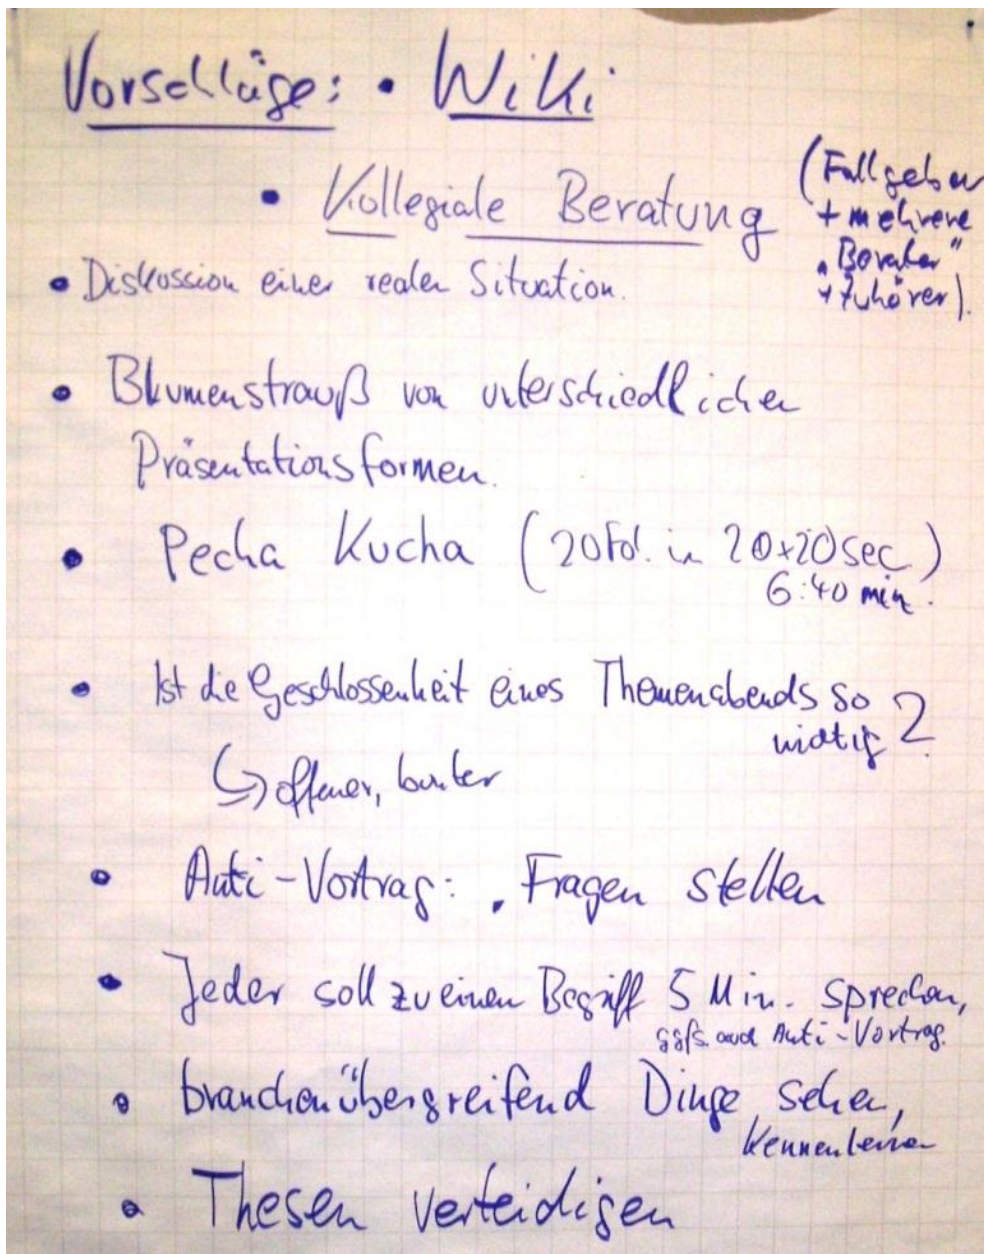 Vorschläge: • Wiki
• Kollegiale Beratung
(Fallgeber
+ mehrere
„Berater"
+ Zuhörer).
• Diskussion einer realen Situation.
• Blumenstrauß von unterschiedlichen
Präsentationsformen.
• Pecha Kucha (20 Fol. in 20x20 sec)
6:40 min.
• Ist die Geschlossenheit eines Themenabends so
wichtig?
↳ offener, bunter
• Anti-Vortrag: • Fragen stellen
• Jeder soll zu einen Begriff 5 Min. sprechen,
ggfs. auch Anti-Vortrag.
• branchenübergreifend Dinge sehen,
kennenlernen
• Thesen verteidigen